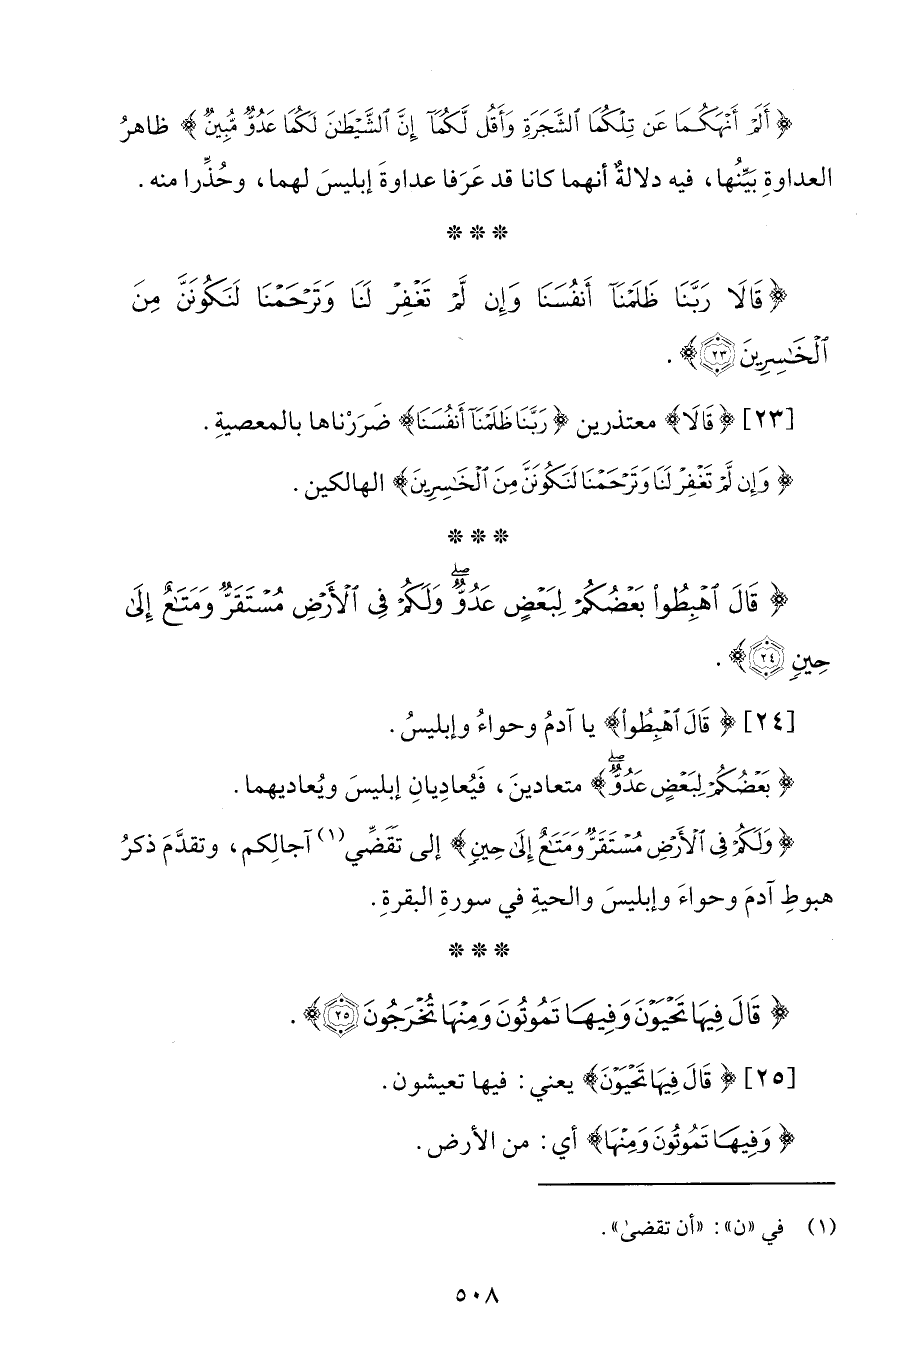 ﴿أَلَمْ أَنْهَكُمَا عَن تِلْكُمَا ٱلشَّجَرَةِ وَأَقُل لَّكُمَآ إِنَّ ٱلشَّيْطَٰنَ لَكُمَا عَدُوٌّ مُّبِينٌ﴾ ظاهرُ
العداوةِ بَيِّنُها، فيه دلالةٌ أنهما كانا قد عَرَفا عداوةَ إبليسَ لهما، وحُذِّرا منه.
***
﴿قَالَا رَبَّنَا ظَلَمْنَآ أَنفُسَنَا وَإِن لَّمْ تَغْفِرْ لَنَا وَتَرْحَمْنَا لَنَكُونَنَّ مِنَ
ٱلْخَٰسِرِينَ ٢٣﴾.
[٢٣] ﴿قَالَا﴾ معتذرين ﴿رَبَّنَا ظَلَمْنَآ أَنفُسَنَا﴾ ضَرَرْناها بالمعصيةِ.
﴿وَإِن لَّمْ تَغْفِرْ لَنَا وَتَرْحَمْنَا لَنَكُونَنَّ مِنَ ٱلْخَٰسِرِينَ﴾ الهالكين.
***
﴿قَالَ ٱهْبِطُوا۟ بَعْضُكُمْ لِبَعْضٍ عَدُوٌّ ۖ وَلَكُمْ فِى ٱلْأَرْضِ مُسْتَقَرٌّ وَمَتَٰعٌ إِلَىٰ
حِينٍ ٢٤﴾.
[٢٤] ﴿قَالَ ٱهْبِطُوا۟﴾ يا آدمُ وحواءُ وإبليسُ.
﴿بَعْضُكُمْ لِبَعْضٍ عَدُوٌّ ۖ﴾ متعادينَ، فَيُعادِيانِ إبليسَ ويُعاديهما.
﴿وَلَكُمْ فِى ٱلْأَرْضِ مُسْتَقَرٌّ وَمَتَٰعٌ إِلَىٰ حِينٍ﴾ إلى تَقَضِّي(١) آجالِكم، وتقدَّمَ ذكرُ
هبوطِ آدمَ وحواءَ وإبليسَ والحيةِ في سورةِ البقرةِ.
***
﴿قَالَ فِيهَا تَحْيَوْنَ وَفِيهَا تَمُوتُونَ وَمِنْهَا تُخْرَجُونَ ٢٥﴾.
[٢٥] ﴿قَالَ فِيهَا تَحْيَوْنَ﴾ يعني: فيها تعيشون.
﴿وَفِيهَا تَمُوتُونَ وَمِنْهَا﴾ أي: من الأرض.
(١) في «ن»: «أن تقضىٰ».
٥٠٨